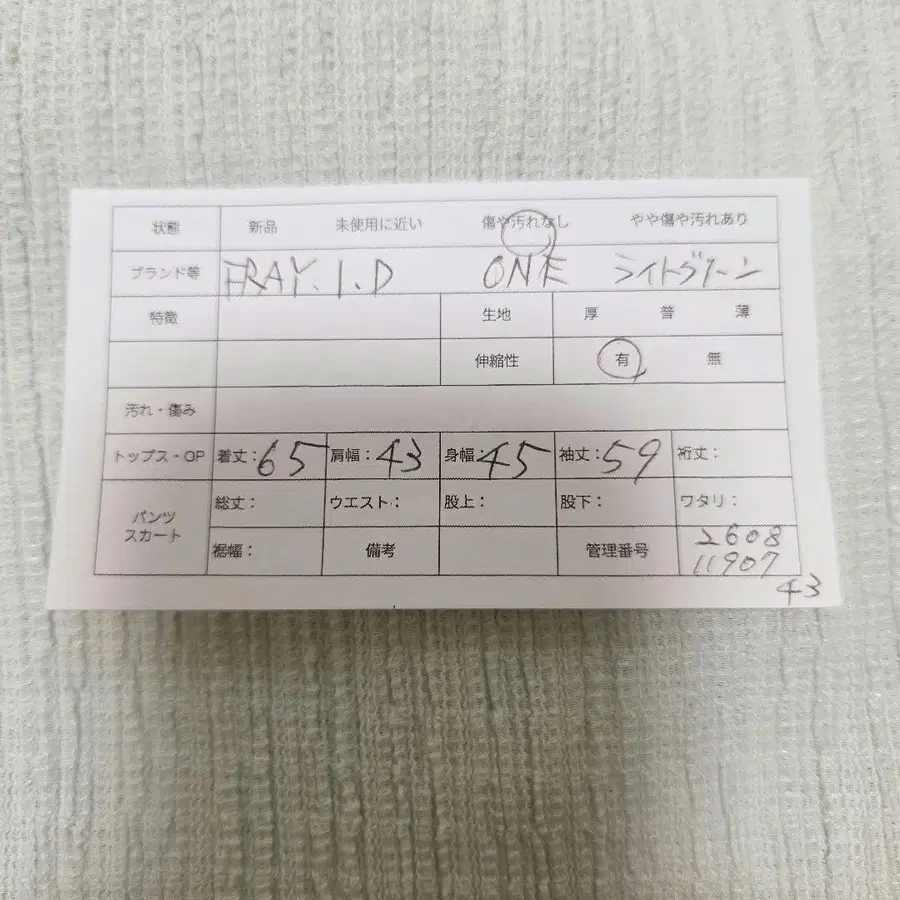 状態 新品 未使用に近い 傷や汚れなし やや傷や汚れあり
ブランド等 FRAY.I.D ONE ライトグリーン
特徴 生地 厚 普 薄
伸縮性 有 無
汚れ・傷み
トップス・OP 着丈:65 肩幅:43 身幅:45 袖丈:59 裄丈:
パンツ スカート 総丈: ウエスト: 股上: 股下: ワタリ:
裾幅: 備考 管理番号 2608
11907
43